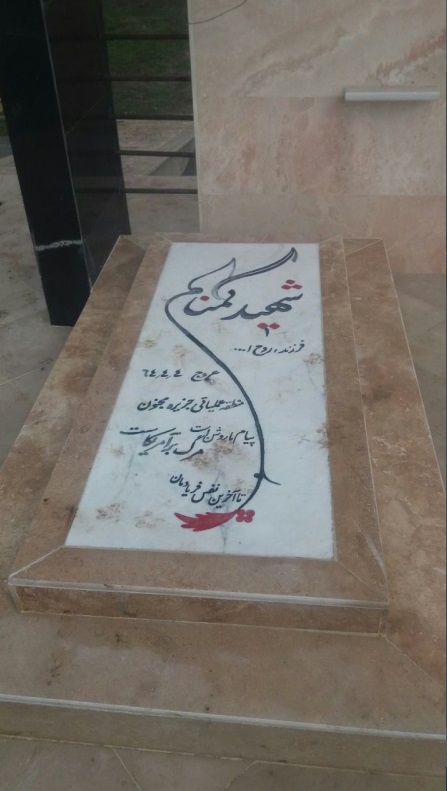 شهید گمنام
۱
فرزند: روح ا...
عروج ۶۴،۴،۴
منطقه عملیاتی جزیره مجنون
پیام ما روشن است
مرگ بر آمریکاست
تا آخرین نفس فریادمان